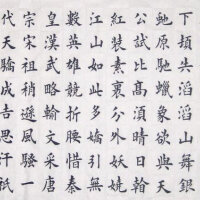 下頓失滔滔山舞銀
虵原馳蠟象欲與天
公試比高須晴日看
紅裝素裹分外妖嬈
江山如此多嬌引無
數英雄競折腰惜秦
皇漢武略輸文采唐
宗宋祖稍遜風騷一
代天驕成吉思汗祇